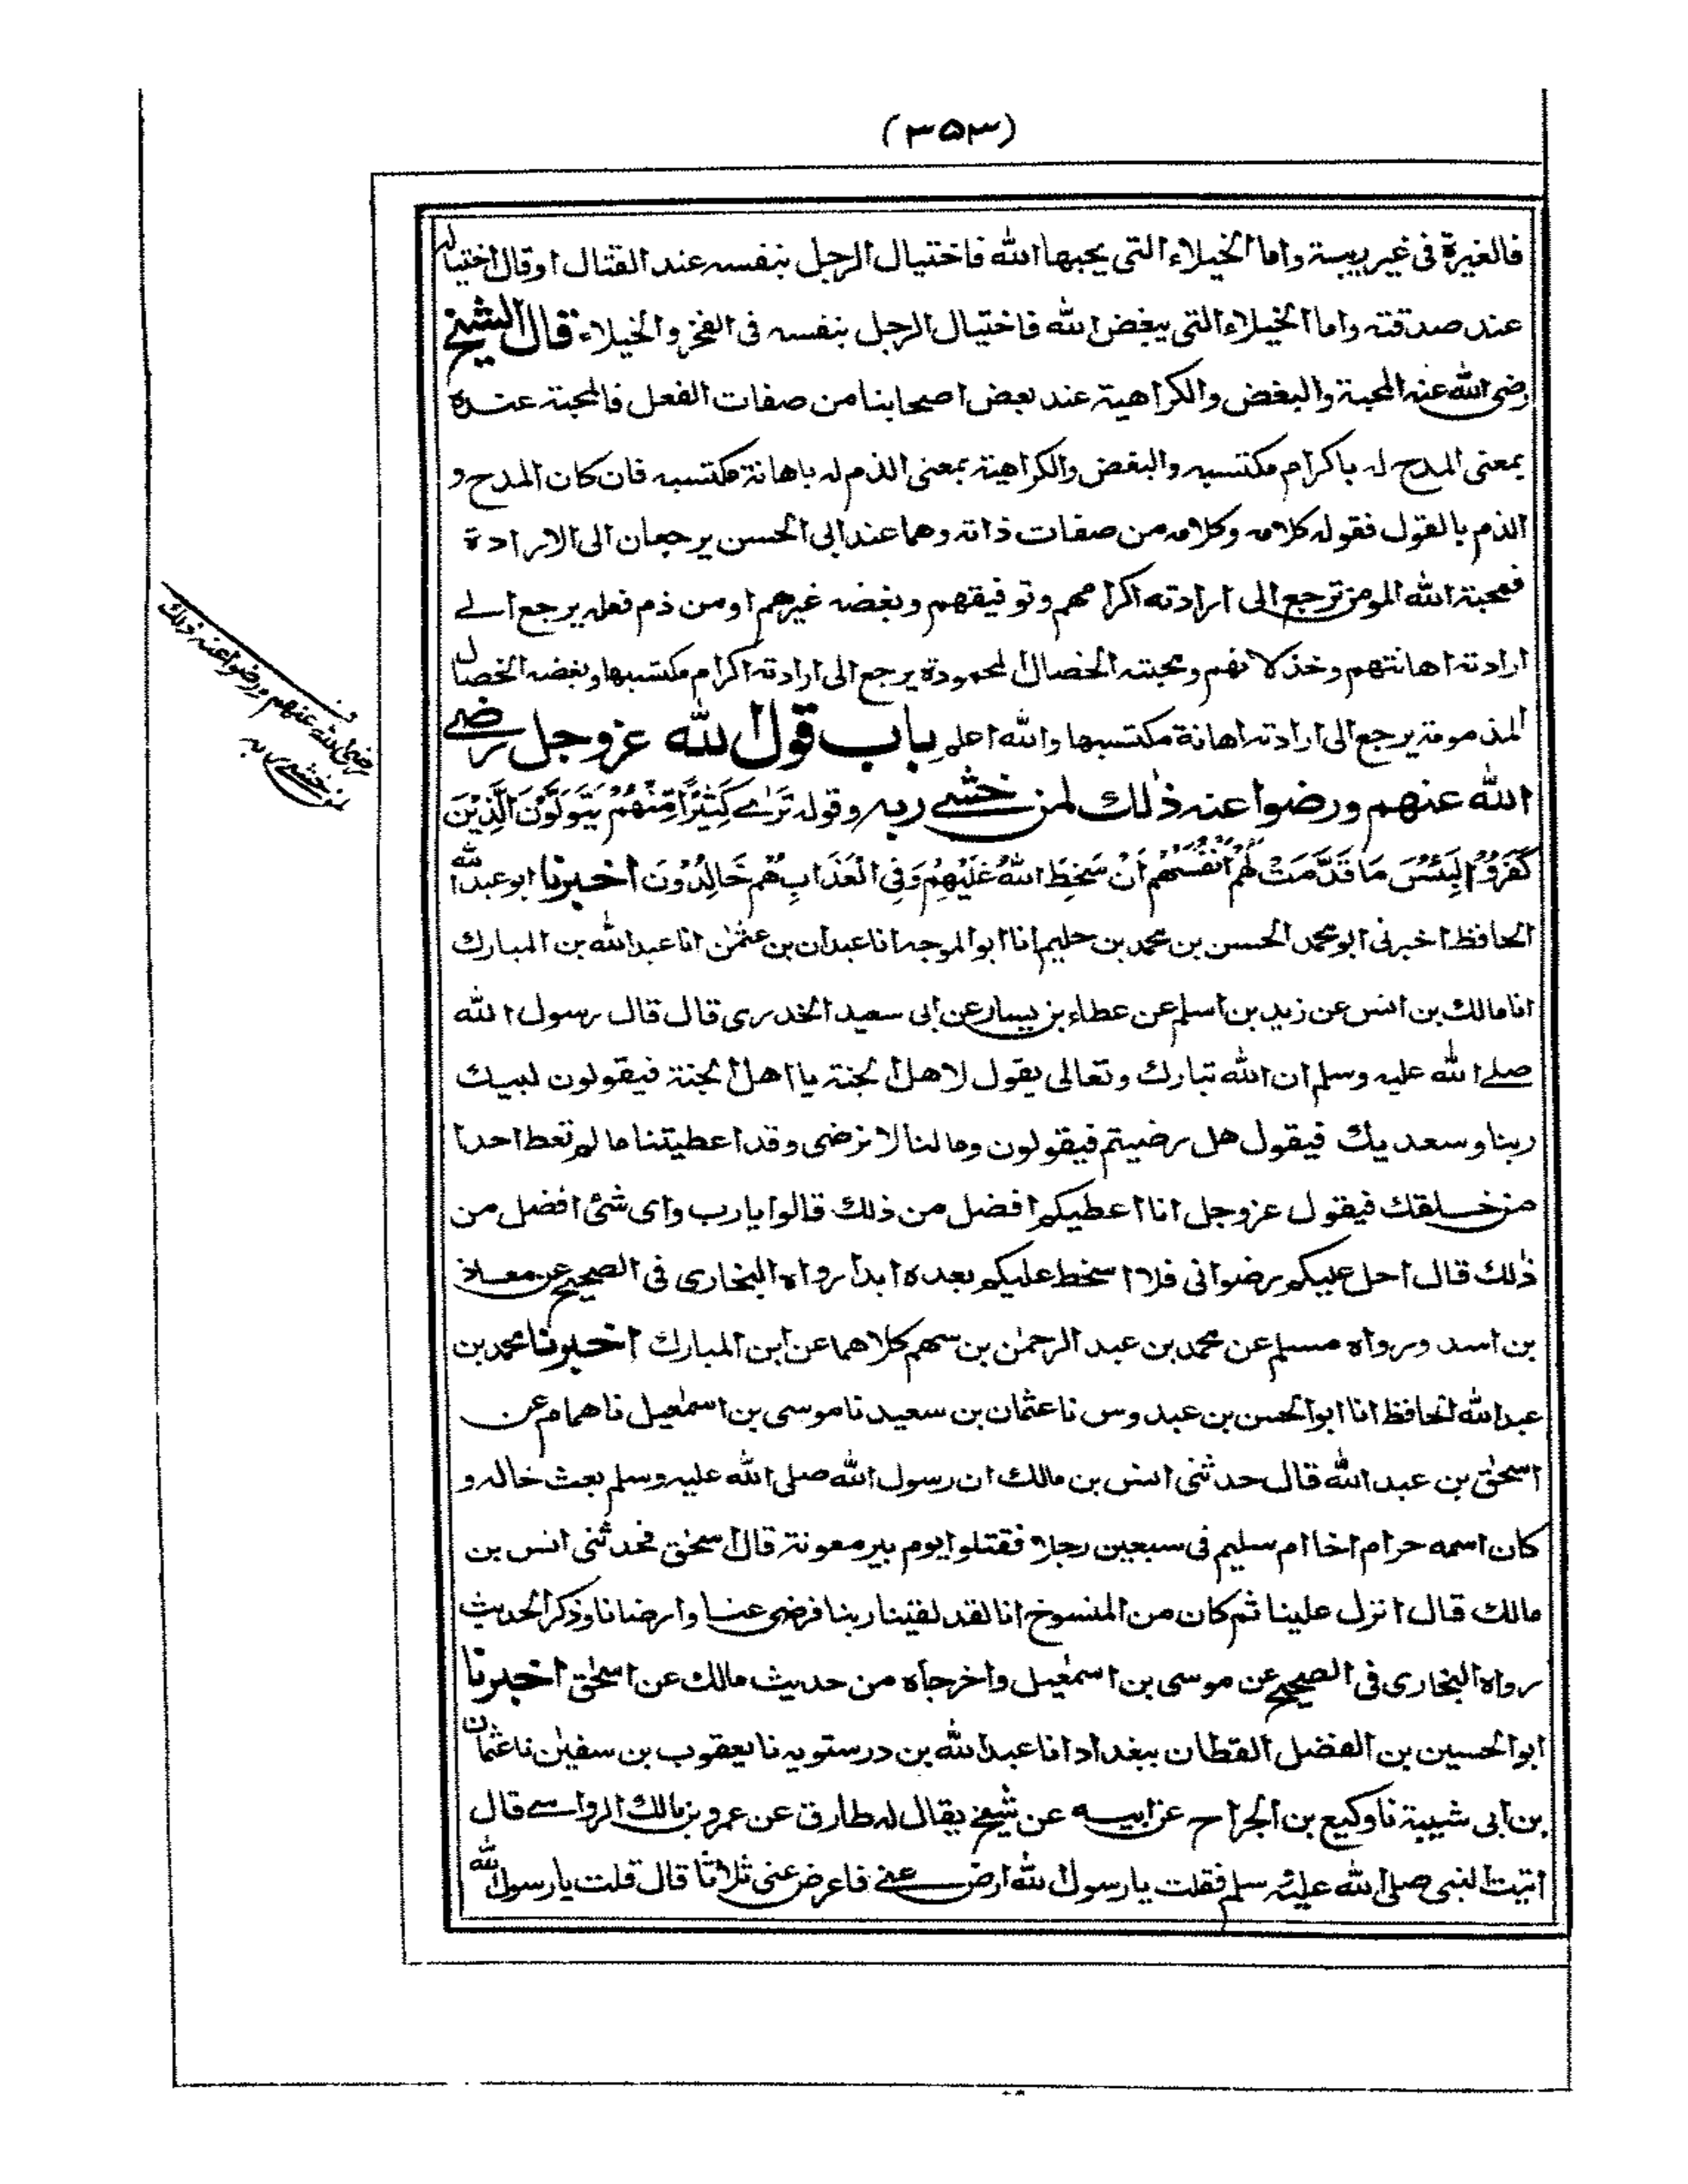 (٣٥٣)
فالغيرة في غير ريبة واما الخيلاء التي يحبها الله فاختيال الرجل بنفسه عند القتال او قال اختياله
عند صدقته واما الخيلاء التي يبغض الله فاختيال الرجل بنفسه في الفخر والخيلاء قال الشيخ
رضي الله عنه المحبة والبغض والكراهية عند بعض اصحابنا من صفات الفعل فالمحبة عنده
بمعنى المدح له باكرام مكتسبه والبغض والكراهية بمعنى الذم له باهانة مكتسبه فان كان المدح و
الذم بالقول فقوله كلامه وكلامه من صفات ذاته وهما عند ابي الحسن يرجعان الى الارادة
فمحبة الله المومن ترجع الى ارادته اكرامهم وتوفيقهم وبغضه غيرهم او من ذم فعله يرجع الے
ارادته اهانتهم وخذلانهم ومحبته الخصال المحمودة يرجع الى ارادته اكرام مكتسبها وبغضه الخصال
المذمومة يرجع الى ارادته اهانة مكتسبها والله اعلم باب قول الله عزوجل رضے
الله عنهم ورضوا عنه ذٰلك لمن خشے ربه وقوله تَرٰے كَثِيْرًا مِّنْهُمْ يَتَوَلَّوْنَ الَّذِيْنَ
كَفَرُوْا لَبِئْسَ مَا قَدَّمَتْ لَهُمْ اَنْفُسُهُمْ اَنْ سَخِطَ اللهُ عَلَيْهِمْ وَفِي الْعَذَابِ هُمْ خَالِدُوْنَ اخبرنا ابو عبد الله
الحافظ اخبرني ابو محمد الحسن بن محمد بن حليم انا ابو الموجه انا عبدان بن عثمٰن انا عبد الله بن المبارك
انا مالك بن انس عن زيد بن اسلم عن عطاء بن يسار عن ابي سعيد الخدري قال قال رسول الله
صلے الله عليه وسلم ان الله تبارك وتعالى يقول لاهل الجنة يا اهل الجنة فيقولون لبيك
ربنا وسعديك فيقول هل رضيتم فيقولون وما لنا لا نرضى وقد اعطيتنا ما لم تعط احدا
من خلقك فيقول عزوجل انا اعطيكم افضل من ذلك قالوا يا رب واى شئ افضل من
ذٰلك قال احل عليكم رضواني فلا اسخط عليكم بعده ابدا رواه البخاري في الصحيح عن معاذ
بن اسد ورواه مسلم عن محمد بن عبد الرحمٰن بن سهم كلاهما عن ابن المبارك اخبرنا محمد بن
عبد الله الحافظ انا ابو الحسن بن عبدوس نا عثمان بن سعيد نا موسى بن اسمٰعيل نا همام عن
اسحٰق بن عبد الله قال حدثني انس بن مالك ان رسول الله صلى الله عليه وسلم بعث خاله و
كان اسمه حرام اخا ام سليم في سبعين رجلا فقتلوا يوم بير معونة قال اسحٰق فحدثني انس بن
مالك قال انزل علينا ثم كان من المنسوخ انا لقد لقينا ربنا فرضي عنا وارضانا وذكر الحديث
رواه البخاري في الصحيح عن موسى بن اسمٰعيل واخرجاه من حديث مالك عن اسحٰق اخبرنا
ابو الحسين بن الفضل القطان ببغداد انا عبد الله بن درستويه نا يعقوب بن سفيٰن نا عثمان
بن ابي شيبة نا وكيع بن الجراح عن ابيه عن شيخ يقال له طارق عن عمرو بن مالك الرواسے قال
اتيت النبي صلى الله عليه وسلم فقلت يا رسول الله ارض عنے فاعرض عني ثلاثا قال قلت يا رسول الله
رضي الله عنهم ورضوا عنه ذلك
لمن خشے ربه